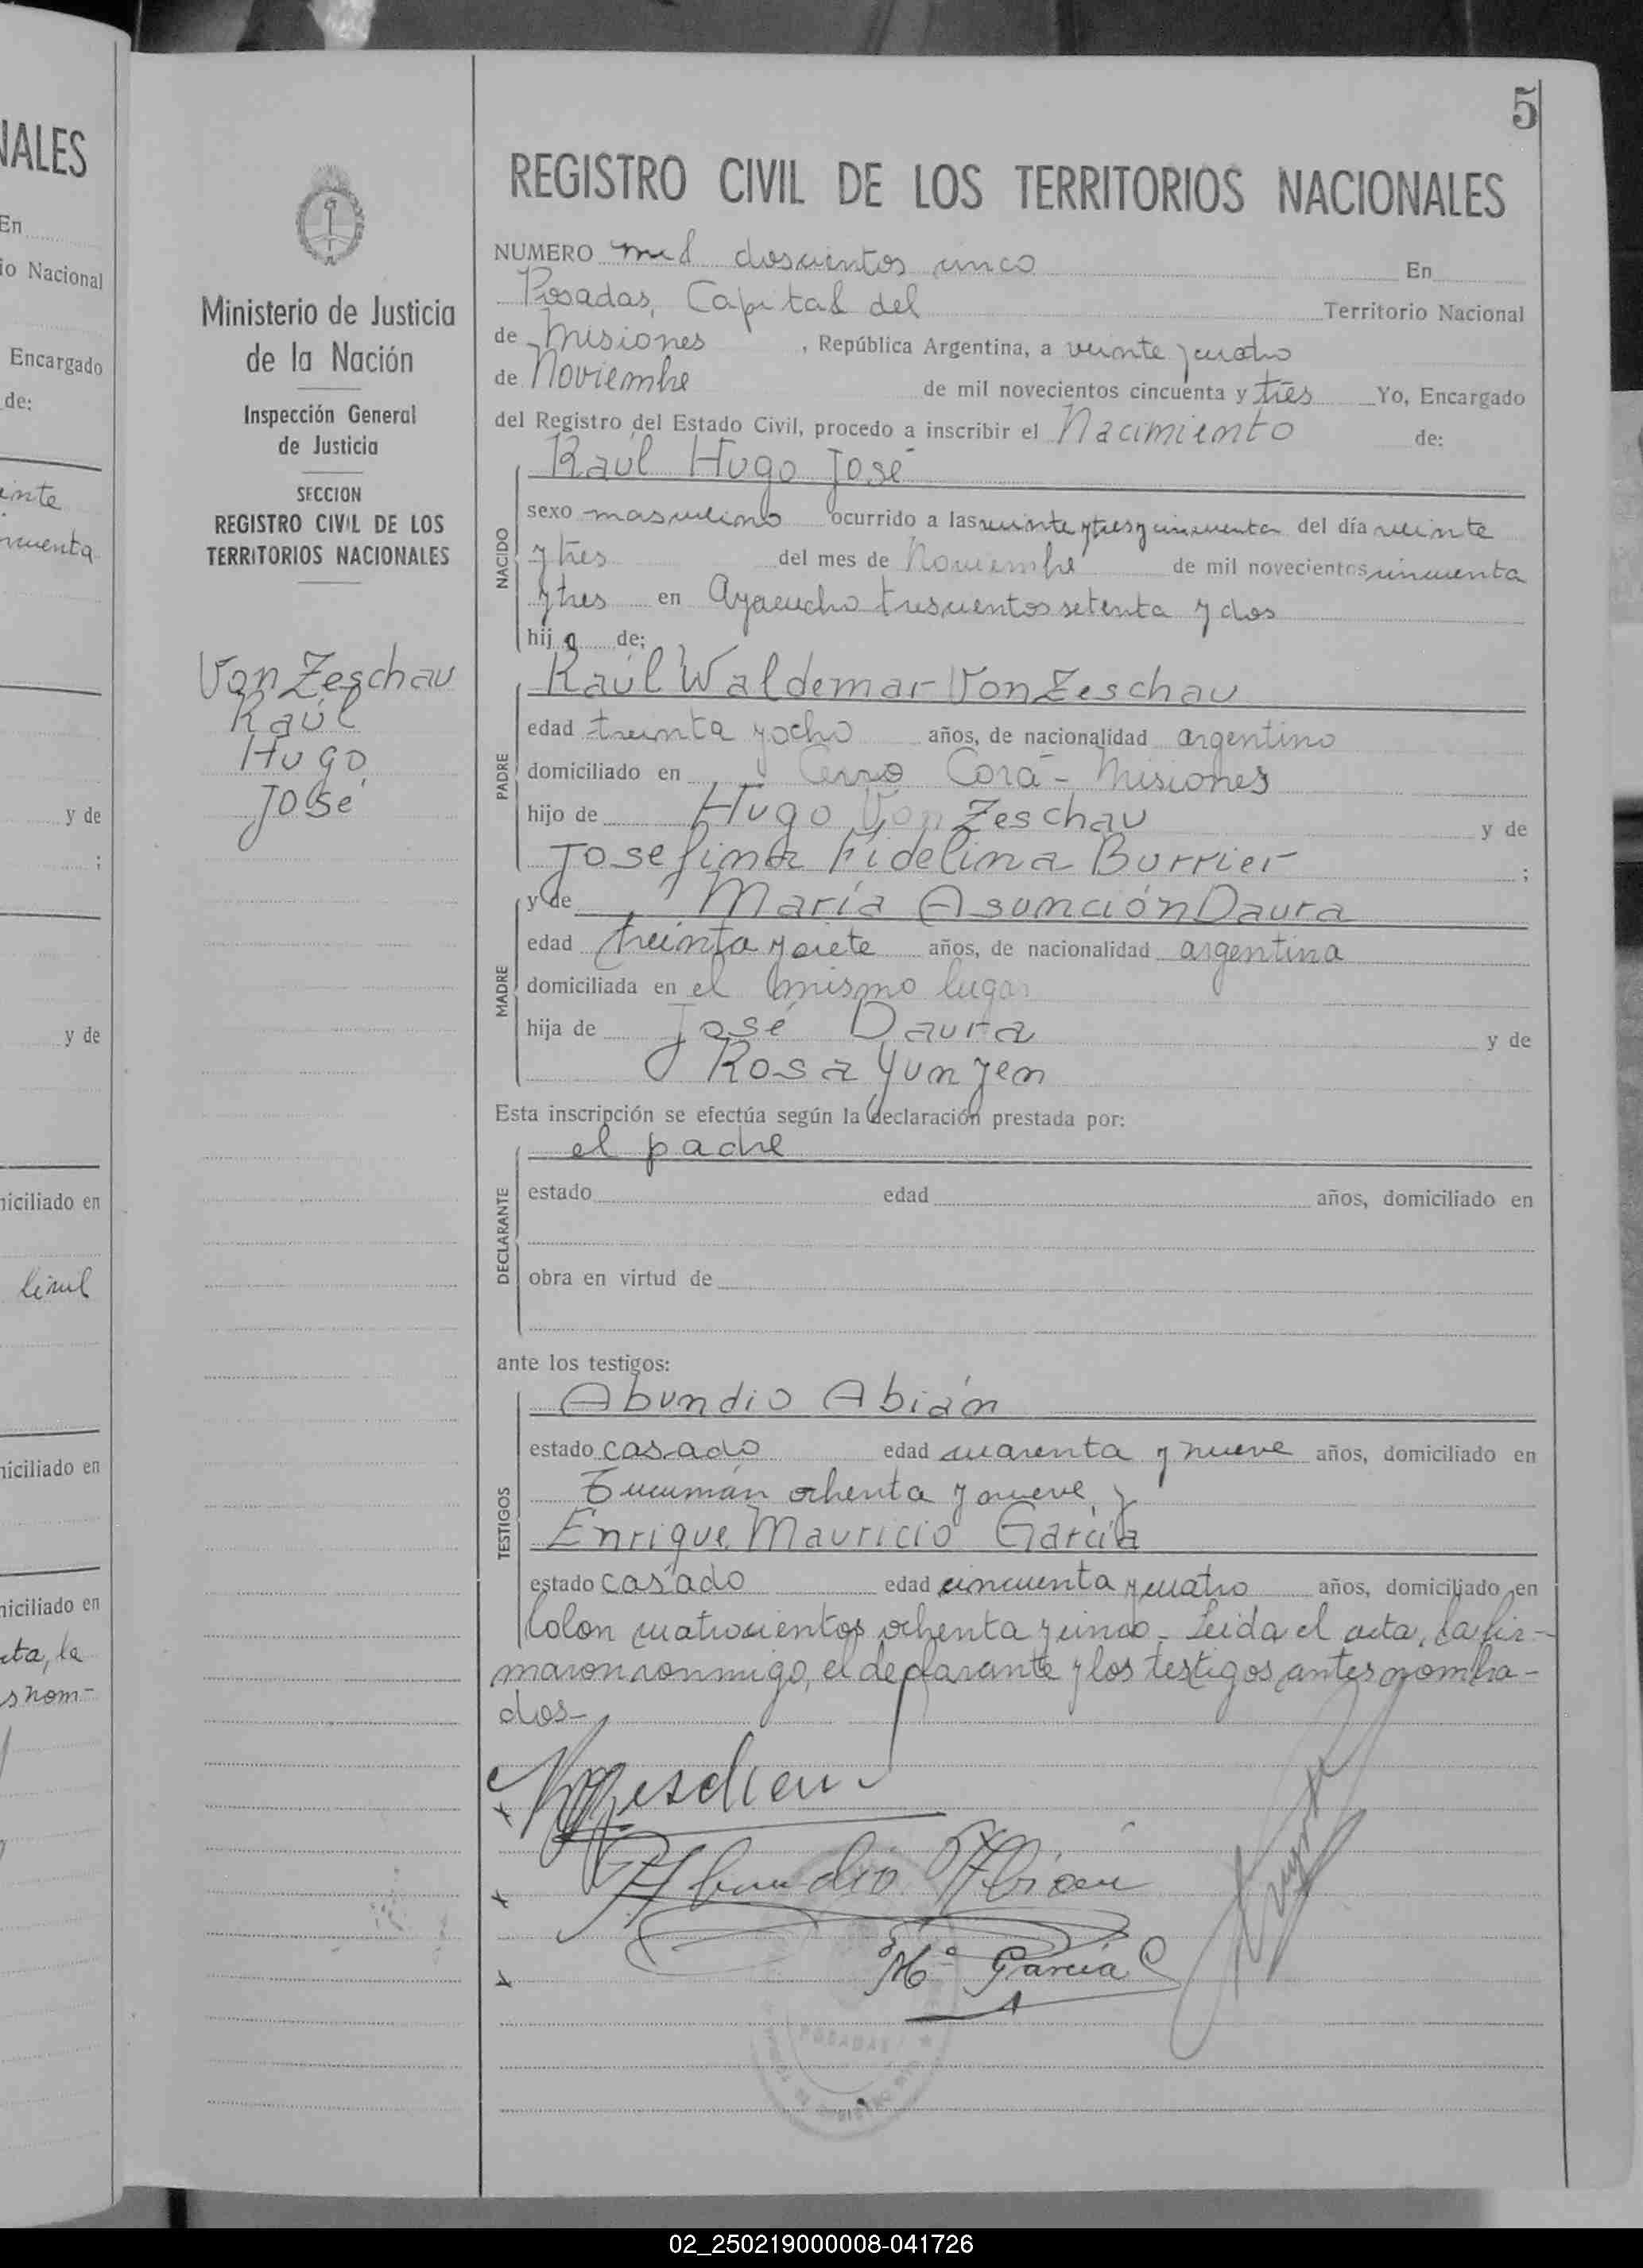 5
NALES
En
io Nacional
Encargado
de:
inte
ncuenta
y de
;
y de
niciliado en
niciliado en
niciliado en
cta, la
s nom-
Ministerio de Justicia
de la Nación
Inspección General
de Justicia
SECCION
REGISTRO CIVIL DE LOS
TERRITORIOS NACIONALES
Von Zeschau
Raúl
Hugo
José
REGISTRO CIVIL DE LOS TERRITORIOS NACIONALES
NUMERO mil doscientos cinco En
Posadas, Capital del Territorio Nacional
de Misiones , República Argentina, a veinte y cuatro
de Noviembre de mil novecientos cincuenta y tres Yo, Encargado
del Registro del Estado Civil, procedo a inscribir el Nacimiento de:
NACIDO
Raúl Hugo José
sexo masculino ocurrido a las veinte y tres y cincuenta del día veinte
y tres del mes de Noviembre de mil novecientos cincuenta
y tres en Ayacucho trescientos setenta y dos
hijo de;
PADRE
Raúl Waldemar Von Zeschau
edad treinta y ocho años, de nacionalidad argentino
domiciliado en Cerro Corá - Misiones
hijo de Hugo Von Zeschau y de
Josefina Fidelina Burrier ;
MADRE
y de María Asunción Daura
edad treinta y siete años, de nacionalidad argentina
domiciliada en el mismo lugar
hija de José Daura y de
Rosa Yunyen
Esta inscripción se efectúa según la declaración prestada por:
DECLARANTE
el padre
estado edad años, domiciliado en
obra en virtud de
ante los testigos:
TESTIGOS
Abundio Abián
estado casado edad cuarenta y nueve años, domiciliado en
Tucumán ochenta y nueve, y
Enrique Mauricio García
estado casado edad cincuenta y cuatro años, domiciliado en
Colon cuatrocientos ochenta y cinco - Leida el acta, la fir-
maron conmigo, el declarante y los testigos antes nombra-
dos-
Abundio Abian
Mº García
POSADAS
02_250219000008-041726